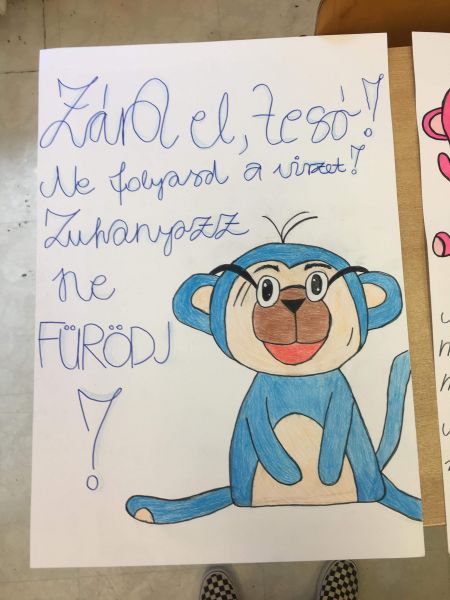 Zárd el, tesó!
Ne folyasd a vizet!
Zuhanyozz
ne
FÜRÖDJ
!